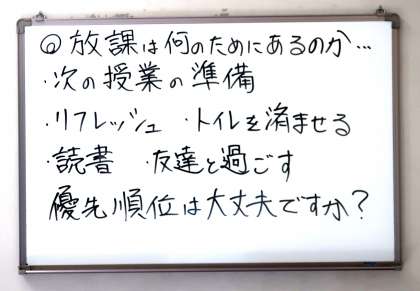 ◎放課は何のためにあるのか…
・次の授業の準備
・リフレッシュ ・トイレを済ませる
・読書 ・友達と過ごす
優先順位は大丈夫ですか？